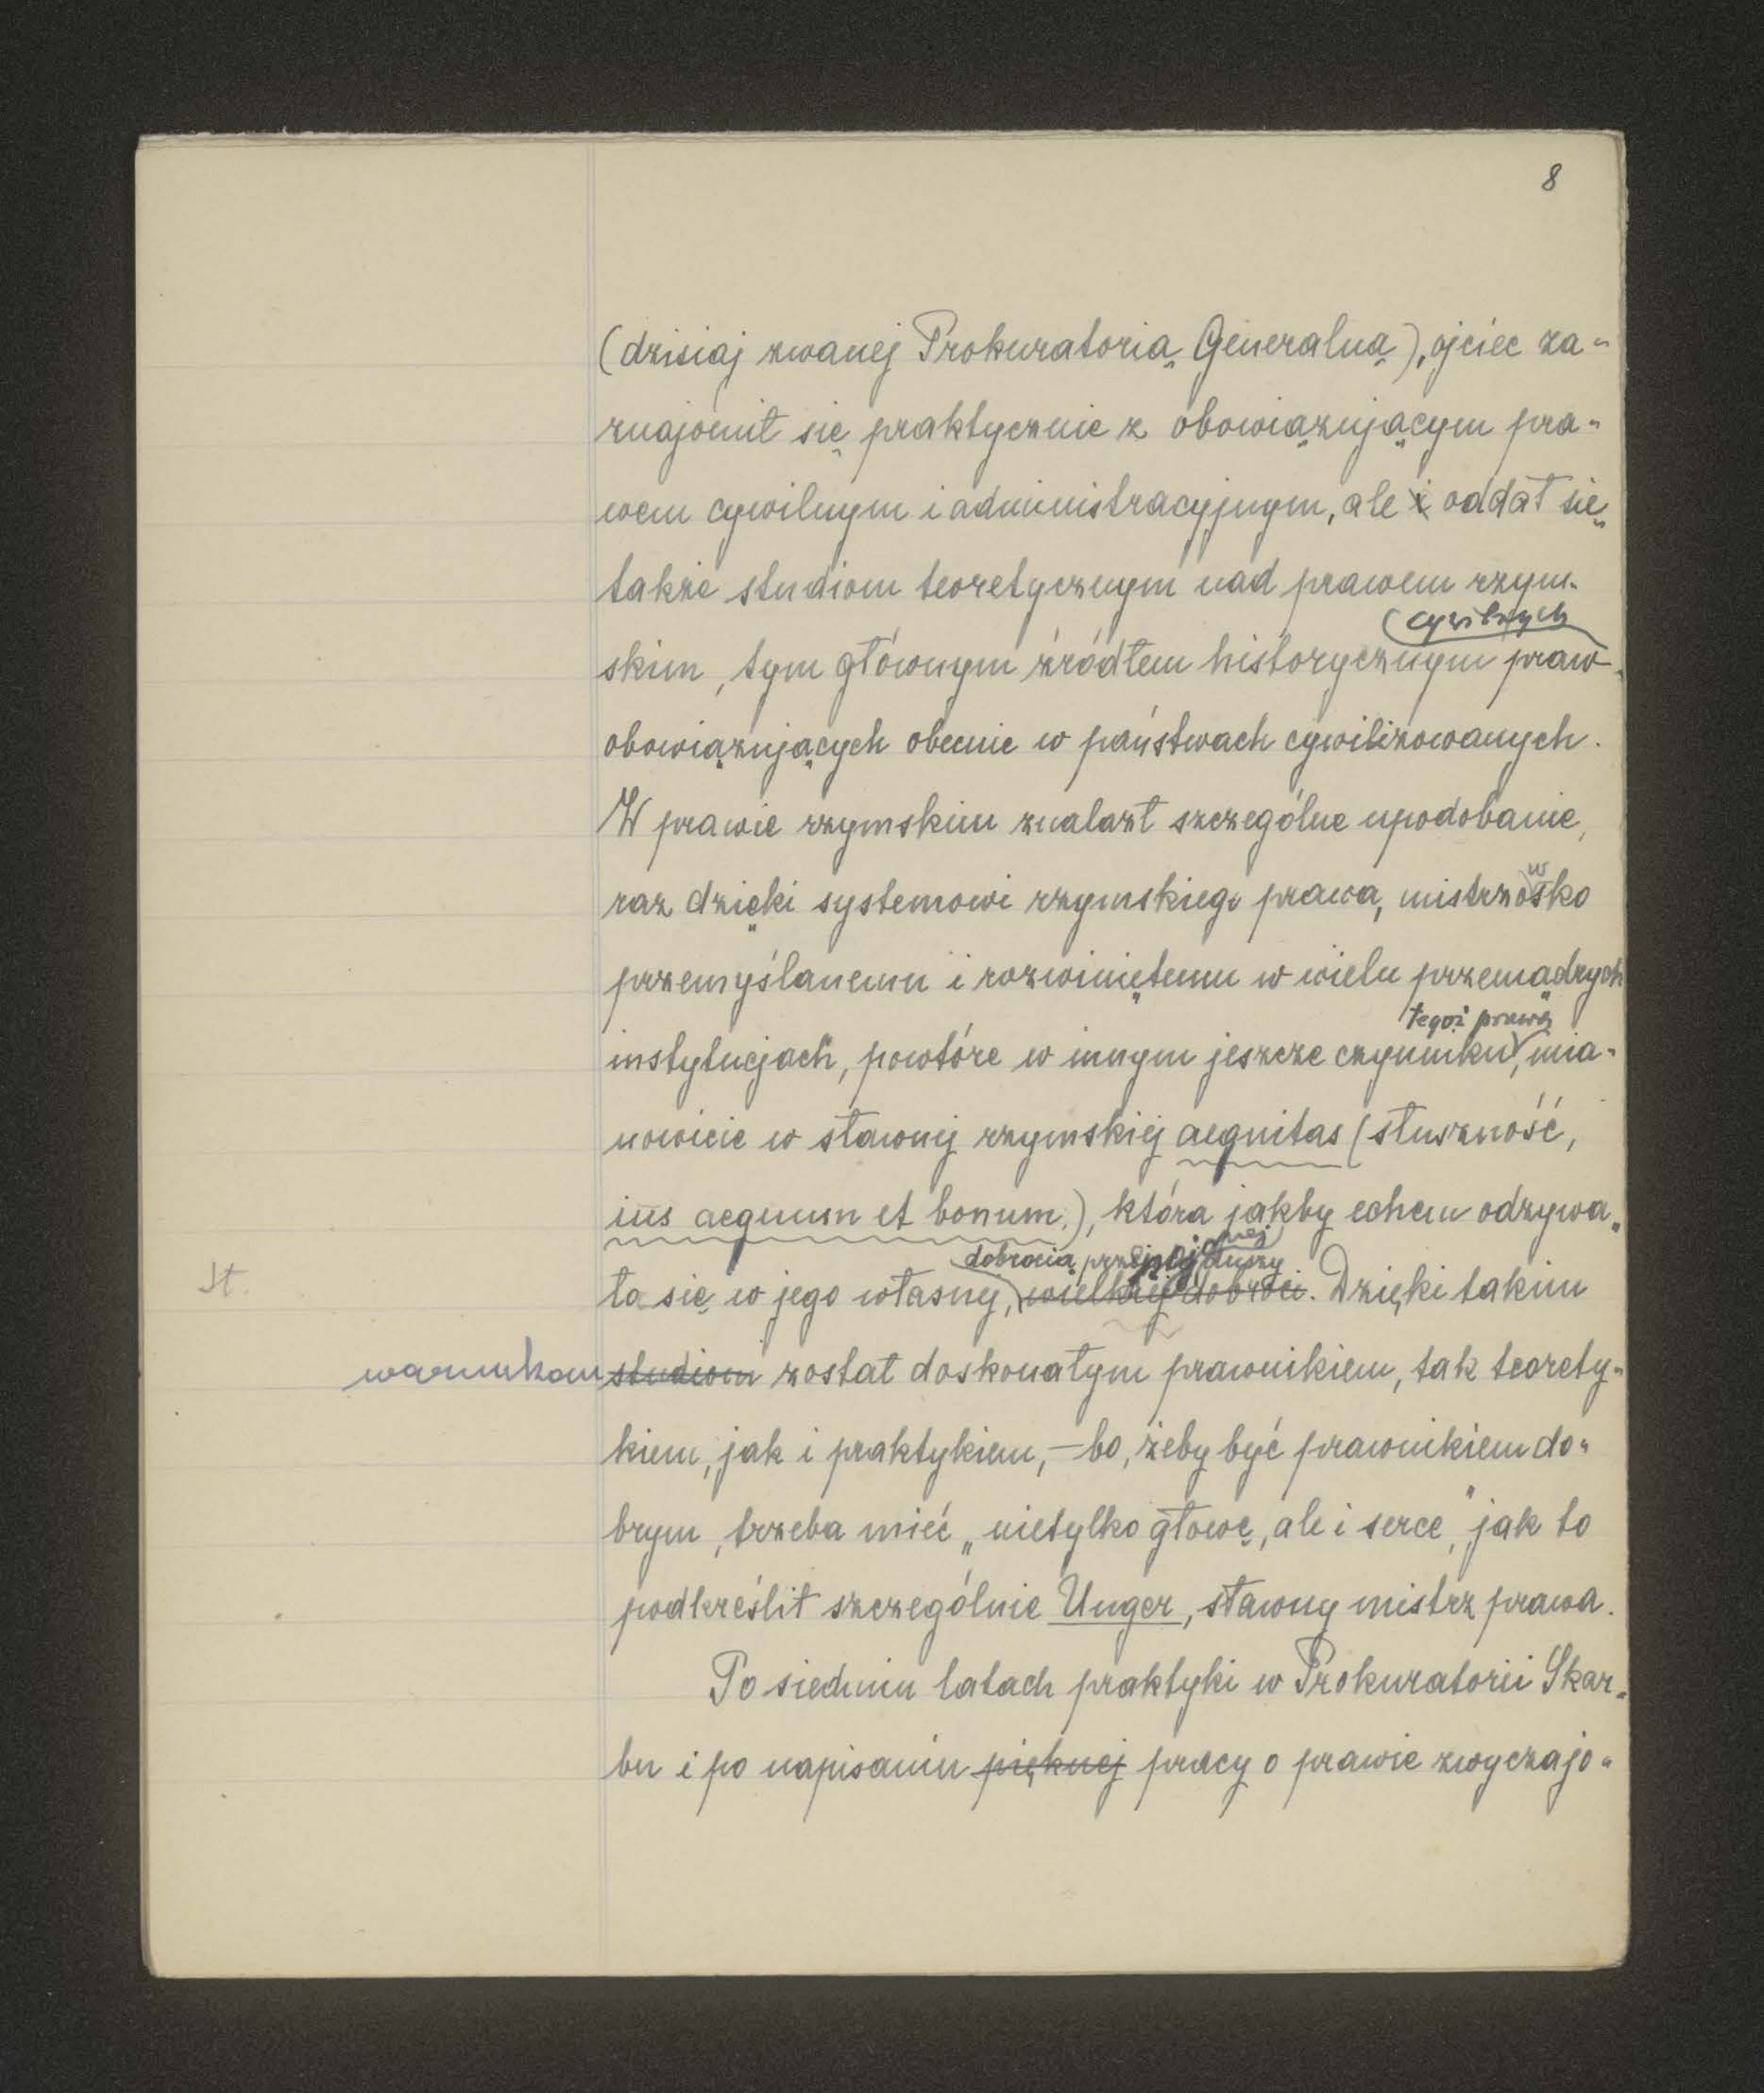 8
(dzisiaj zwanej Prokuratorią Generalną), ojciec za-
znajomił się praktycznie z obowiązującym pra-
wem cywilnym i administracyjnym, ale i oddał się
także studiom teoretycznym nad prawem rzym-
cywilnych
skim, tym głównym źródłem historycznym praw
obowiązujących obecnie w państwach cywilizowanych.
W prawie rzymskim znalazł szczególne upodobanie,
w
raz dzięki systemowi rzymskiego prawa, mistrzosko
przemyślanemu i rozwiniętemu w wielu przemądrych
tegoż prawa
instytucjach, powtóre w innym jeszcze czynniku, mia-
nowicie w sławnej rzymskiej aequitas (słuszność,
ius aequum et bonum.), która jakby echem odzywa-
dobrocią przepojonej duszy
St.
ła się w jego własnej, wielkiej dobroci. Dzięki takim
warunkom studiom został doskonałym prawnikiem, tak teorety-
kiem, jak i praktykiem, — bo, żeby być prawnikiem do-
brym, trzeba mieć „nietylko głowę, ale i serce," jak to
podkreślił szczególnie Unger, sławny mistrz prawa.
Po siedmiu latach praktyki w Prokuratorii Skar-
bu i po napisaniu pięknej pracy o prawie zwyczajo-